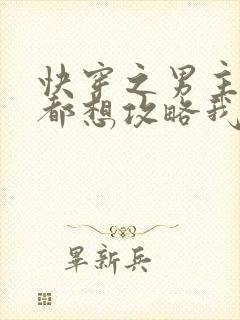 快穿之男主
都想攻略我
畢新兵